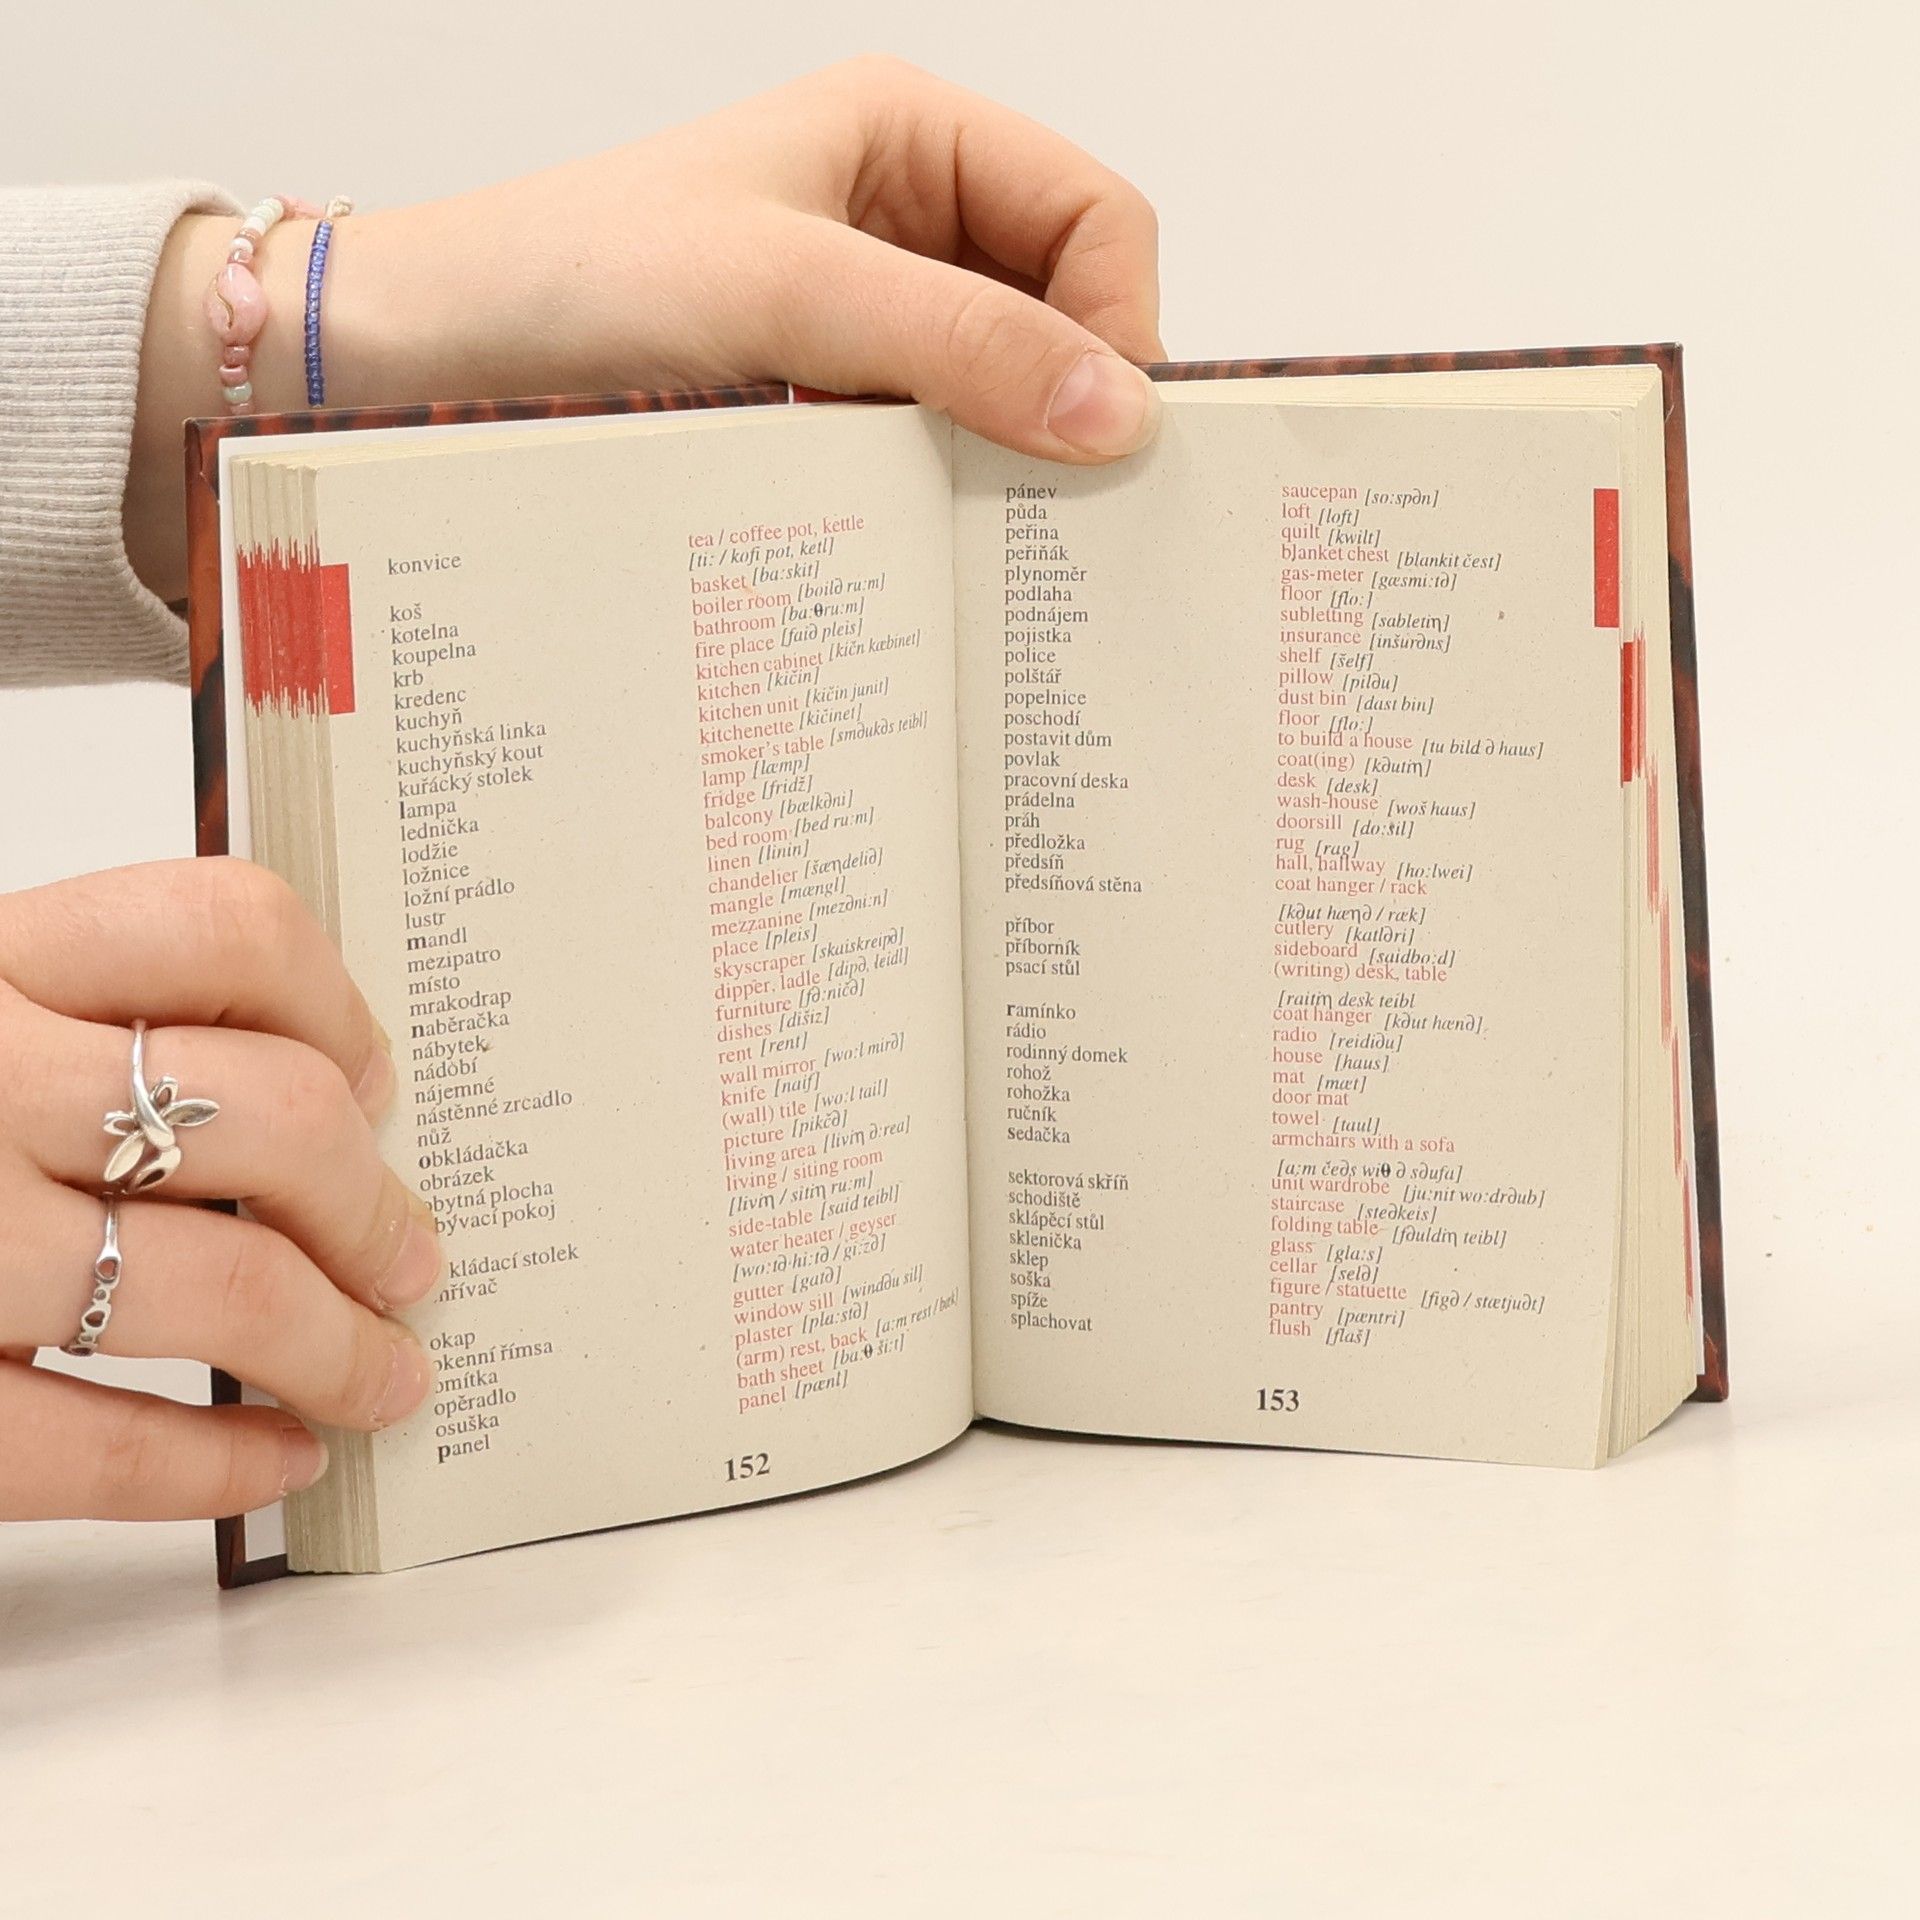 konvice tea / coffee pot, kettle
[ti: / kofi pot, ketl]
koš basket [ba:skit]
kotelna boiler room [boilə ru:m]
koupelna bathroom [ba:θru:m]
krb fire place [faiə pleis]
kredenc kitchen cabinet [kičn kæbinet]
kuchyň kitchen [kičin]
kuchyňská linka kitchen unit [kičin junit]
kuchyňský kout kitchenette [kičinet]
kuřácký stolek smoker's table [sməukəs teibl]
lampa lamp [læmp]
lednička fridge [fridž]
lodžie balcony [bælkəni]
ložnice bed room [bed ru:m]
ložní prádlo linen [linin]
lustr chandelier [šæηdeliə]
mandl mangle [mæηgl]
mezipatro mezzanine [mezəni:n]
místo place [pleis]
mrakodrap skyscraper [skaiskreipə]
naběračka dipper, ladle [dipə, leidl]
nábytek furniture [fə:ničə]
nádobí dishes [dišiz]
nájemné rent [rent]
nástěnné zrcadlo wall mirror [wo:l mirə]
nůž knife [naif]
obkládačka (wall) tile [wo:l tail]
obrázek picture [pikčə]
obytná plocha living area [liviη ə:rea]
bývací pokoj living / siting room
[liviη / sitiη ru:m]
kládací stolek side-table [said teibl]
hřívač water heater / geyser
[wo:tə hi:tə / gi:zə]
okap gutter [gatə]
okenní římsa window sill [windəu sil]
omítka plaster [pla:stə]
opěradlo (arm) rest, back [a:m rest / bæk]
osuška bath sheet [ba:θ ši:t]
panel panel [pænl]
152
pánev saucepan [so:spən]
půda loft [loft]
peřina quilt [kwilt]
peřiňák blanket chest [blankit čest]
plynoměr gas-meter [gæsmi:tə]
podlaha floor [flo:]
podnájem subletting [sabletiη]
pojistka insurance [inšurəns]
police shelf [šelf]
polštář pillow [piləu]
popelnice dust bin [dast bin]
poschodí floor [flo:]
postavit dům to build a house [tu bild ə haus]
povlak coat(ing) [kəutiη]
pracovní deska desk [desk]
prádelna wash-house [woš haus]
práh doorsill [do:sil]
předložka rug [rag]
předsíň hall, hallway [ho:lwei]
předsíňová stěna coat hanger / rack
[kəut hæηə / ræk]
příbor cutlery [katləri]
příborník sideboard [saidbo:d]
psací stůl (writing) desk, table
[raitiη desk teibl
ramínko coat hanger [kəut hænə]
rádio radio [reidiəu]
rodinný domek house [haus]
rohož mat [mæt]
rohožka door mat
ručník towel [taul]
sedačka armchairs with a sofa
[a:m čeəs wiθ ə səufa]
sektorová skříň unit wardrobe [ju:nit wo:drəub]
schodiště staircase [steəkeis]
sklápěcí stůl folding table [fəuldiη teibl]
sklenička glass [gla:s]
sklep cellar [selə]
soška figure / statuette [figə / stætjuət]
spíže pantry [pæntri]
splachovat flush [flaš]
153